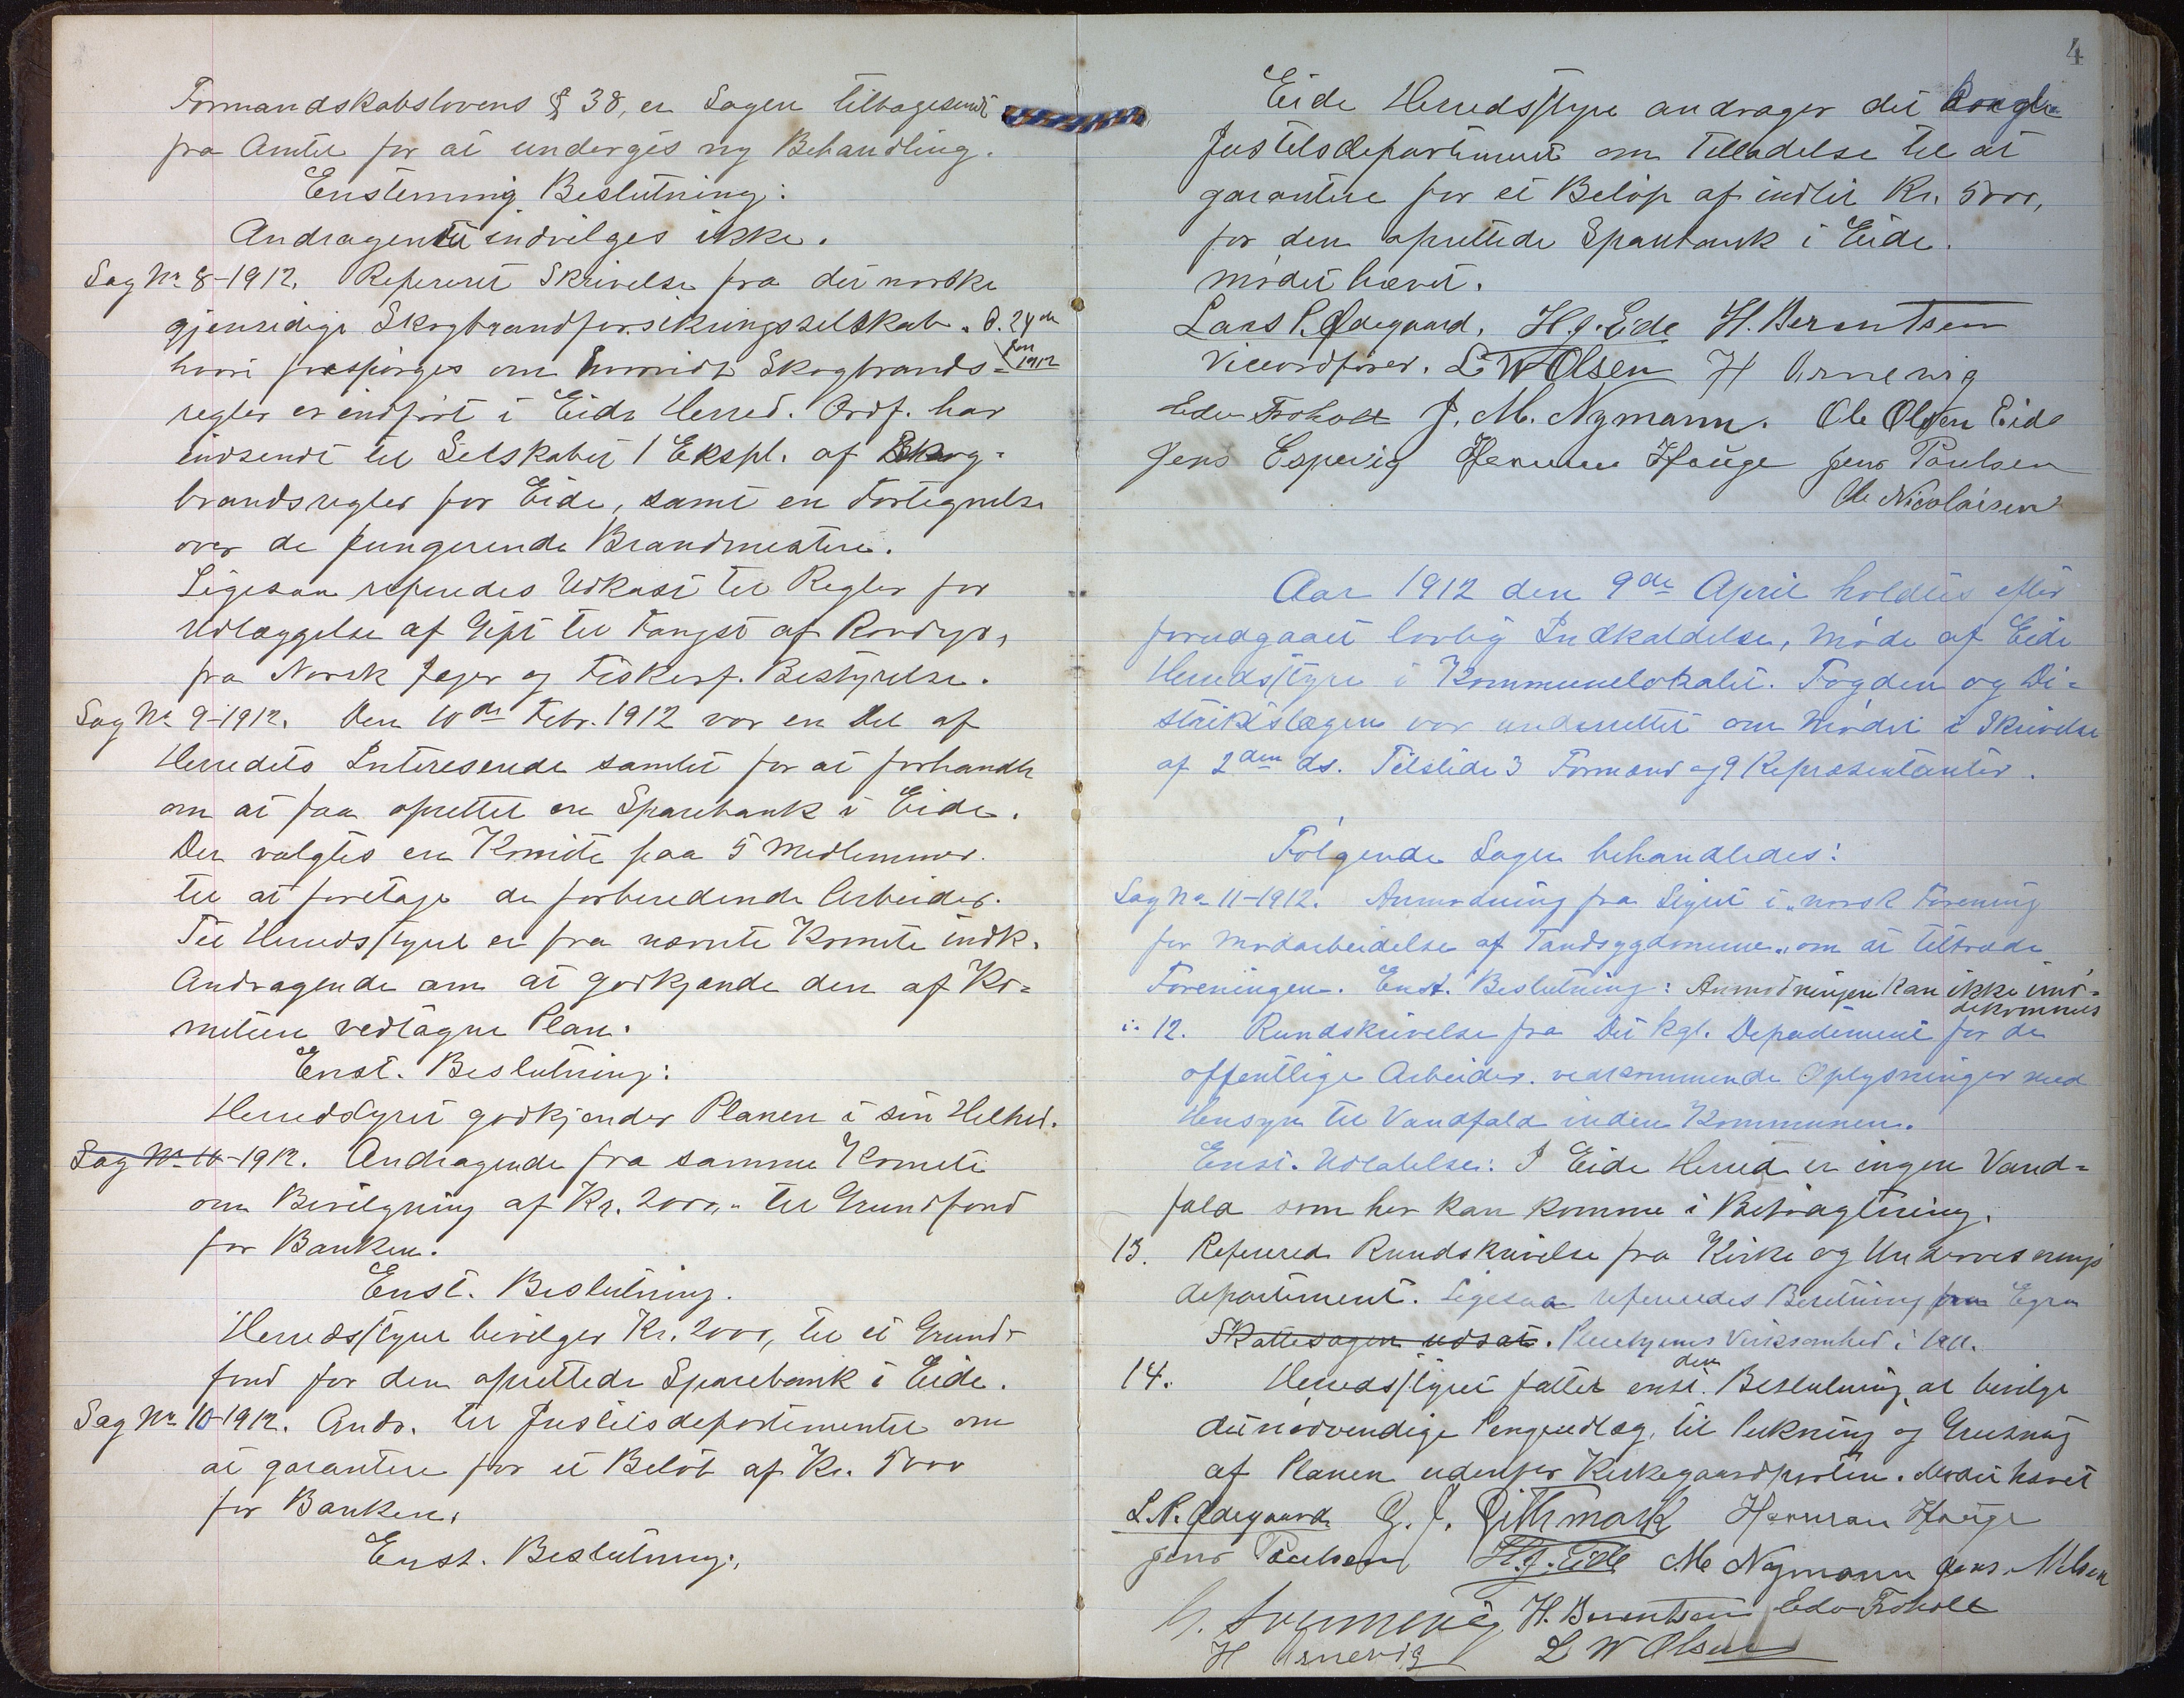 Formandskabslovens § 38, er Sagen tilbagesendt
fra Amtet for at undergis ny Behandling.
Enstemmig Beslutning:
Andragendet indvilges ikke.
Sag No 8-1912. Refereret Skrivelse fra det norske
gjensidige Skogbrandforsikringsselskab. d. 24de
Jan 1912
hvori forespørges om hvorvidt Skogbrands-
regler er indført i Eide Herred. Ordf. har
indsendt til Selskabet 1 Expl. af Skog-
brandsregler for Eide, samt en Fortegnelse
over de fungerende Brandmestere.
Ligesaa referedes Udkast til Regler for
Udlæggelse af Gift til Fangst af Rovdyr,
fra Norsk Jæger og Fiskerf. Bestyrelse.
Sag No 9-1912. Den 10de Febr. 1912 var en Del af
Herredets Interesende samlet for at forhandle
om at faa oprettet en Sparebank i Eide.
Der valgtes en Komite paa 5 Medlemmer.
til at foretage de forberedende Arbeider.
Til Herredsstyret er fra nævnte Komite indk.
Andragende om at godkjende den af Ko-
miteen vedtagne Plan.
Enst. Beslutning:
Herredstyret godkjender Planen i sin Helhed.
Sag No 10-1912. Andragende fra samme Komite
om Bevilgning af Kr. 2000,- til Grundfond
for Banken.
Enst. Beslutning.
Herredsstyret bevilger Kr. 2000, til et Grund-
fond for den oprettede Sparebank i Eide.
Sag No 10-1912. Andr. til Justisdepartementet om
at garantere for et Beløb af Kr. 5000
for Banken.
Enst. Beslutning:
4
Eide Herredsstyre andrager det kongle
Justisdepartement om Tilladelse til at
garantere for et Beløp af indtil Kr. 5000,
for den oprettede Sparebank i Eide.
Mødet hævet.
Lars P. Ødegaard. H. J. Eide H. Berentsen
Viceordfører. L W Olsen H Arnevig
Edv Froholt J. M. Nymann. Ole Olsen Eide
Jens Espevig Herman Hauge Jens Paulsen
Ole Nicolaisen
Aar 1912 den 9de April holdtes efter
forudgaaet lovlig Indkaldelse, Møde af Eide
Herredsstyre i Kommunelokalet. Fogden og Di-
striktslægen var underrettet om Mødet i Skrivelse
af 2den ds. Tilstede 3 Formænd og 9 Repræsentanter.
Følgende Sager behandledes:
Sag No 11-1912. Anmodning fra Styret i "norsk Forening
for Modarbeidelse af Tandsygdomme" om at tiltræde
Foreningen. Enst. Beslutning: Anmodningen kan ikke imø-
dekommes
12. Rundskrivelse fra Det kgl. Departement for de
offentlige Arbeider. vedkommende Oplysninger med
Hensyn til Vandfald inden Kommunen.
Enst. Udtalelse: I Eide Herred er ingen Vand-
fald som her kan komme i Betragtning.
13. Referered Rundskrivelse fra Kirke og Undervisnings
departement. Ligesaa refereredes Beretning fra Egra
Skattesagen udsat. Pleiehjems Virksomhed i 1911.
14. Herredsstyret fatter enst. den Beslutning at bevilge
det nødvendige Pengeudlæg, til Pukning og Grusning
af Planen udenfor Kirkegaardporten. Mødet hævet
L. P. Ødegaard G. J. Githmark Herman Hauge
Jens Paulsen H. J. Eide M. Nymann Jens Nilsen
H. Berentsen Edv Froholt
H Arnevig L W Olsen